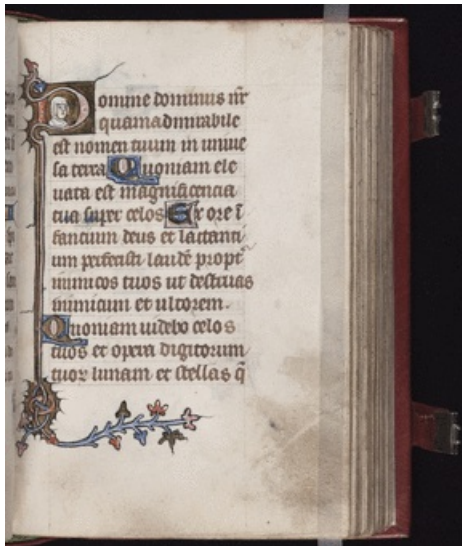 Domine dominus nr̄
quam admirabile
est nomen tuum in uniue
sa terra Quoniam ele
uata est magnificencia
tua super celos Ex ore ī
fancium deus et lactanti
um perfecisti laudē propt̄
inimicos tuos ut destruas
inimicum et ultorem.
Quoniam uidebo celos
tuos et opera digitorum
tuor lunam et stellas q̄